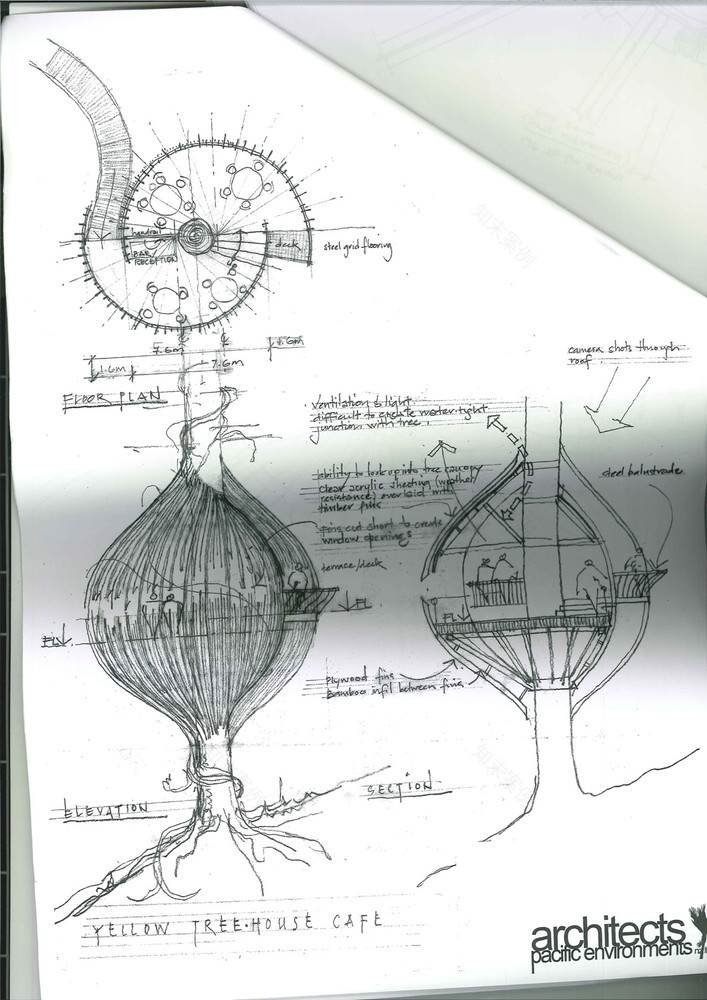 handrail
BAR
RECEPTION
deck
steel grid flooring
7.6m
1.6m
1.6m
7.6m
FLOOR PLAN
camera shots through
roof.
Ventilation & light
difficult to create water-tight
junction with tree.
ability to look up into tree canopy
clear acrylic sheeting (weather
resistance) overlaid with
timber fins
fins cut short to create
window openings
steel balustrade
terrace/deck
FL
FL
FL
Plywood fins
Bamboo infil between fins
ELEVATION
SECTION
YELLOW TREE·HOUSE CAFE
architects
pacific environments
知末案例
知末案例